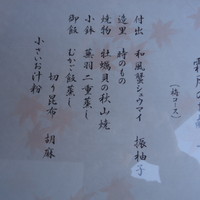 (椿コース)
付出 和風蟹シュウマイ 振柚子
造里 時のもの
焼物 牡蠣貝の秋山焼
小鉢 蕪羽二重蒸し
御飯 むかご飯蒸し
切り昆布 胡麻
小さいお汁粉